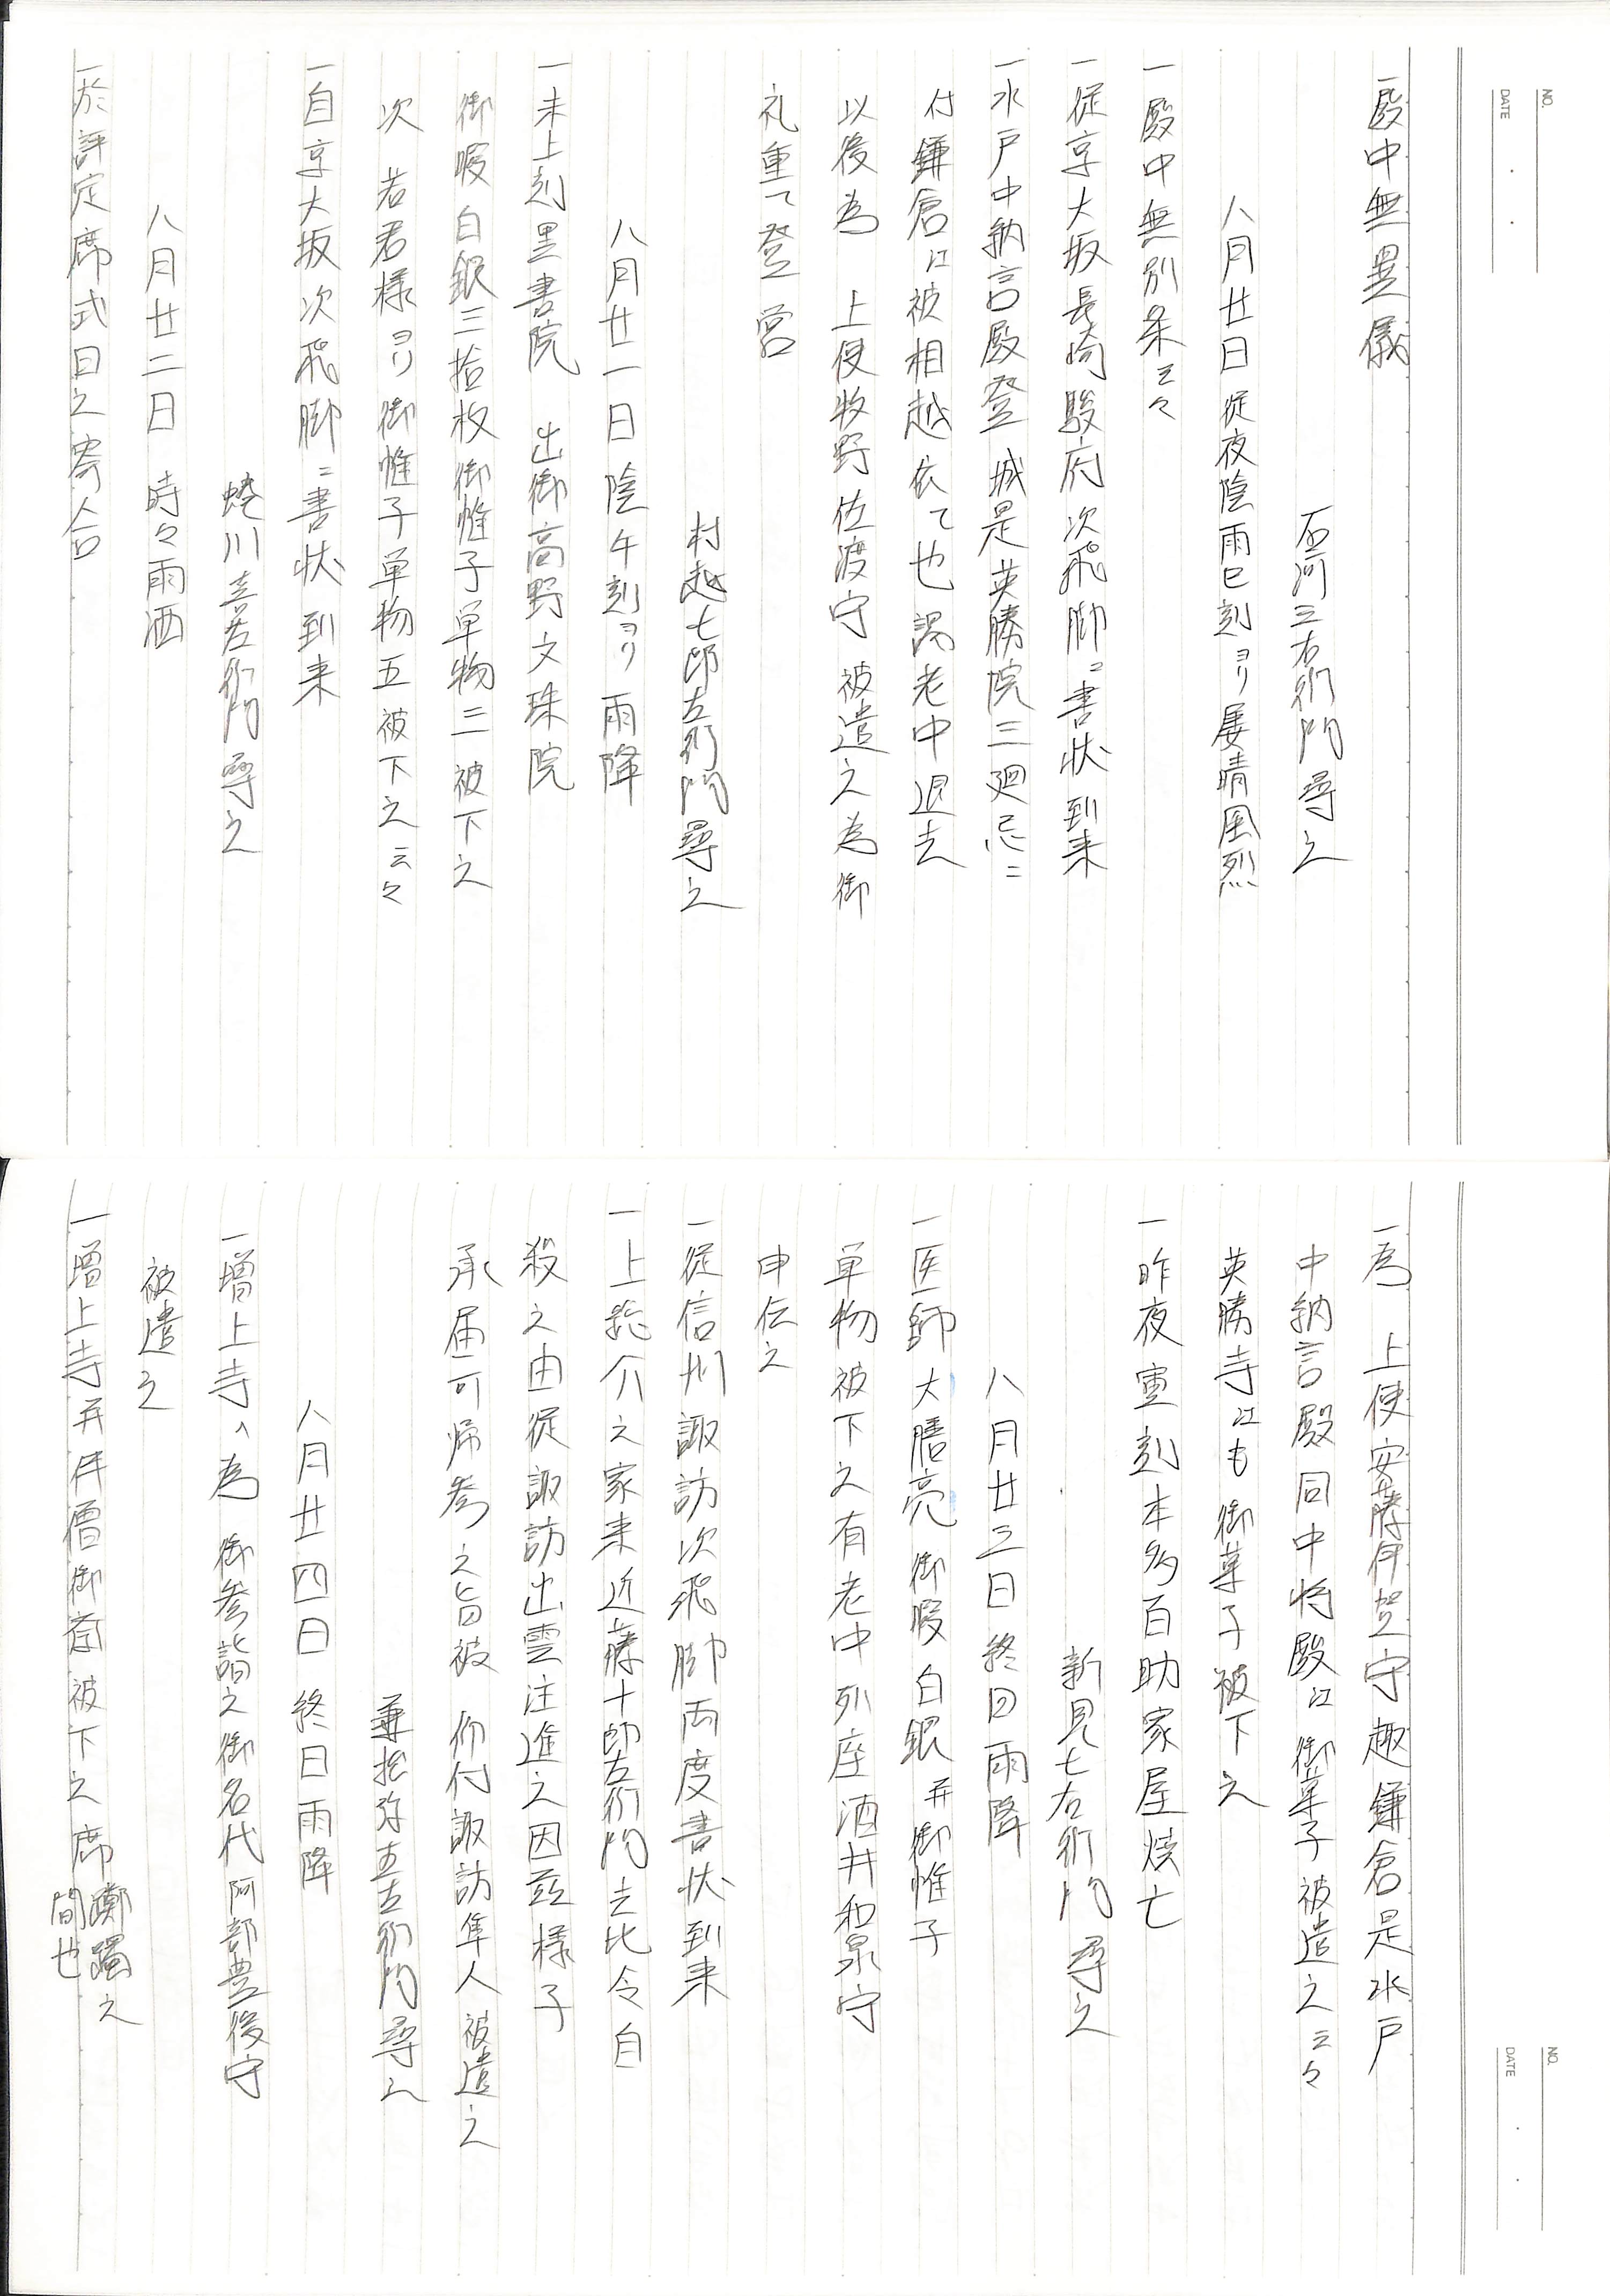 NO.
DATE
一殿中無異儀
石河三右衛門尋之
八月廿日 従夜陰雨巳刻ヨリ屡晴風烈
一殿中無別条云々
一従京大坂長崎駿府次飛脚ニ書状到来
一水戸中納言殿登 城是英勝院三廻忌ニ
付鎌倉江被相越依て也謁老中退去
以後為 上使牧野佐渡守 被遣之為御
礼重て登 営
村越七郎左衛門尋之
八月廿一日 陰午刻ヨリ雨降
一未上刻黒書院 出御高野文珠院
御暇 白銀三拾枚 御帷子単物二 被下之
次 若君様ヨリ御帷子単物五 被下之 云々
一自京大坂次飛脚ニ書状到来
蜷川喜左衛門尋之
八月廿二日 時々雨洒
一於評定席式日之寄合
NO.
DATE
一為 上使安藤伊賀守趣鎌倉是水戸
中納言殿同中将殿江御菓子被遣之 云々
英勝寺江も御菓子被下之
一昨夜寅刻本多百助家屋焼亡
新見七右衛門尋之
八月廿三日 終日雨降
一医師大膳亮 御暇 白銀并御帷子
単物被下之有老中列座酒井和泉守
申伝之
一従信州諏訪次飛脚両度書状到来
一上総介之家来近藤十郎左衛門去比令自
殺之由従諏訪出雲注進之因茲様子
承届可帰参之旨被 仰付諏訪隼人被遣之
兼松弥五左衛門尋之
八月廿四日 終日雨降
一増上寺ヘ為 御参詣之御名代 阿部豊後守
被遣之
一増上寺并伴僧御斎被下之席 躑躅之
間也